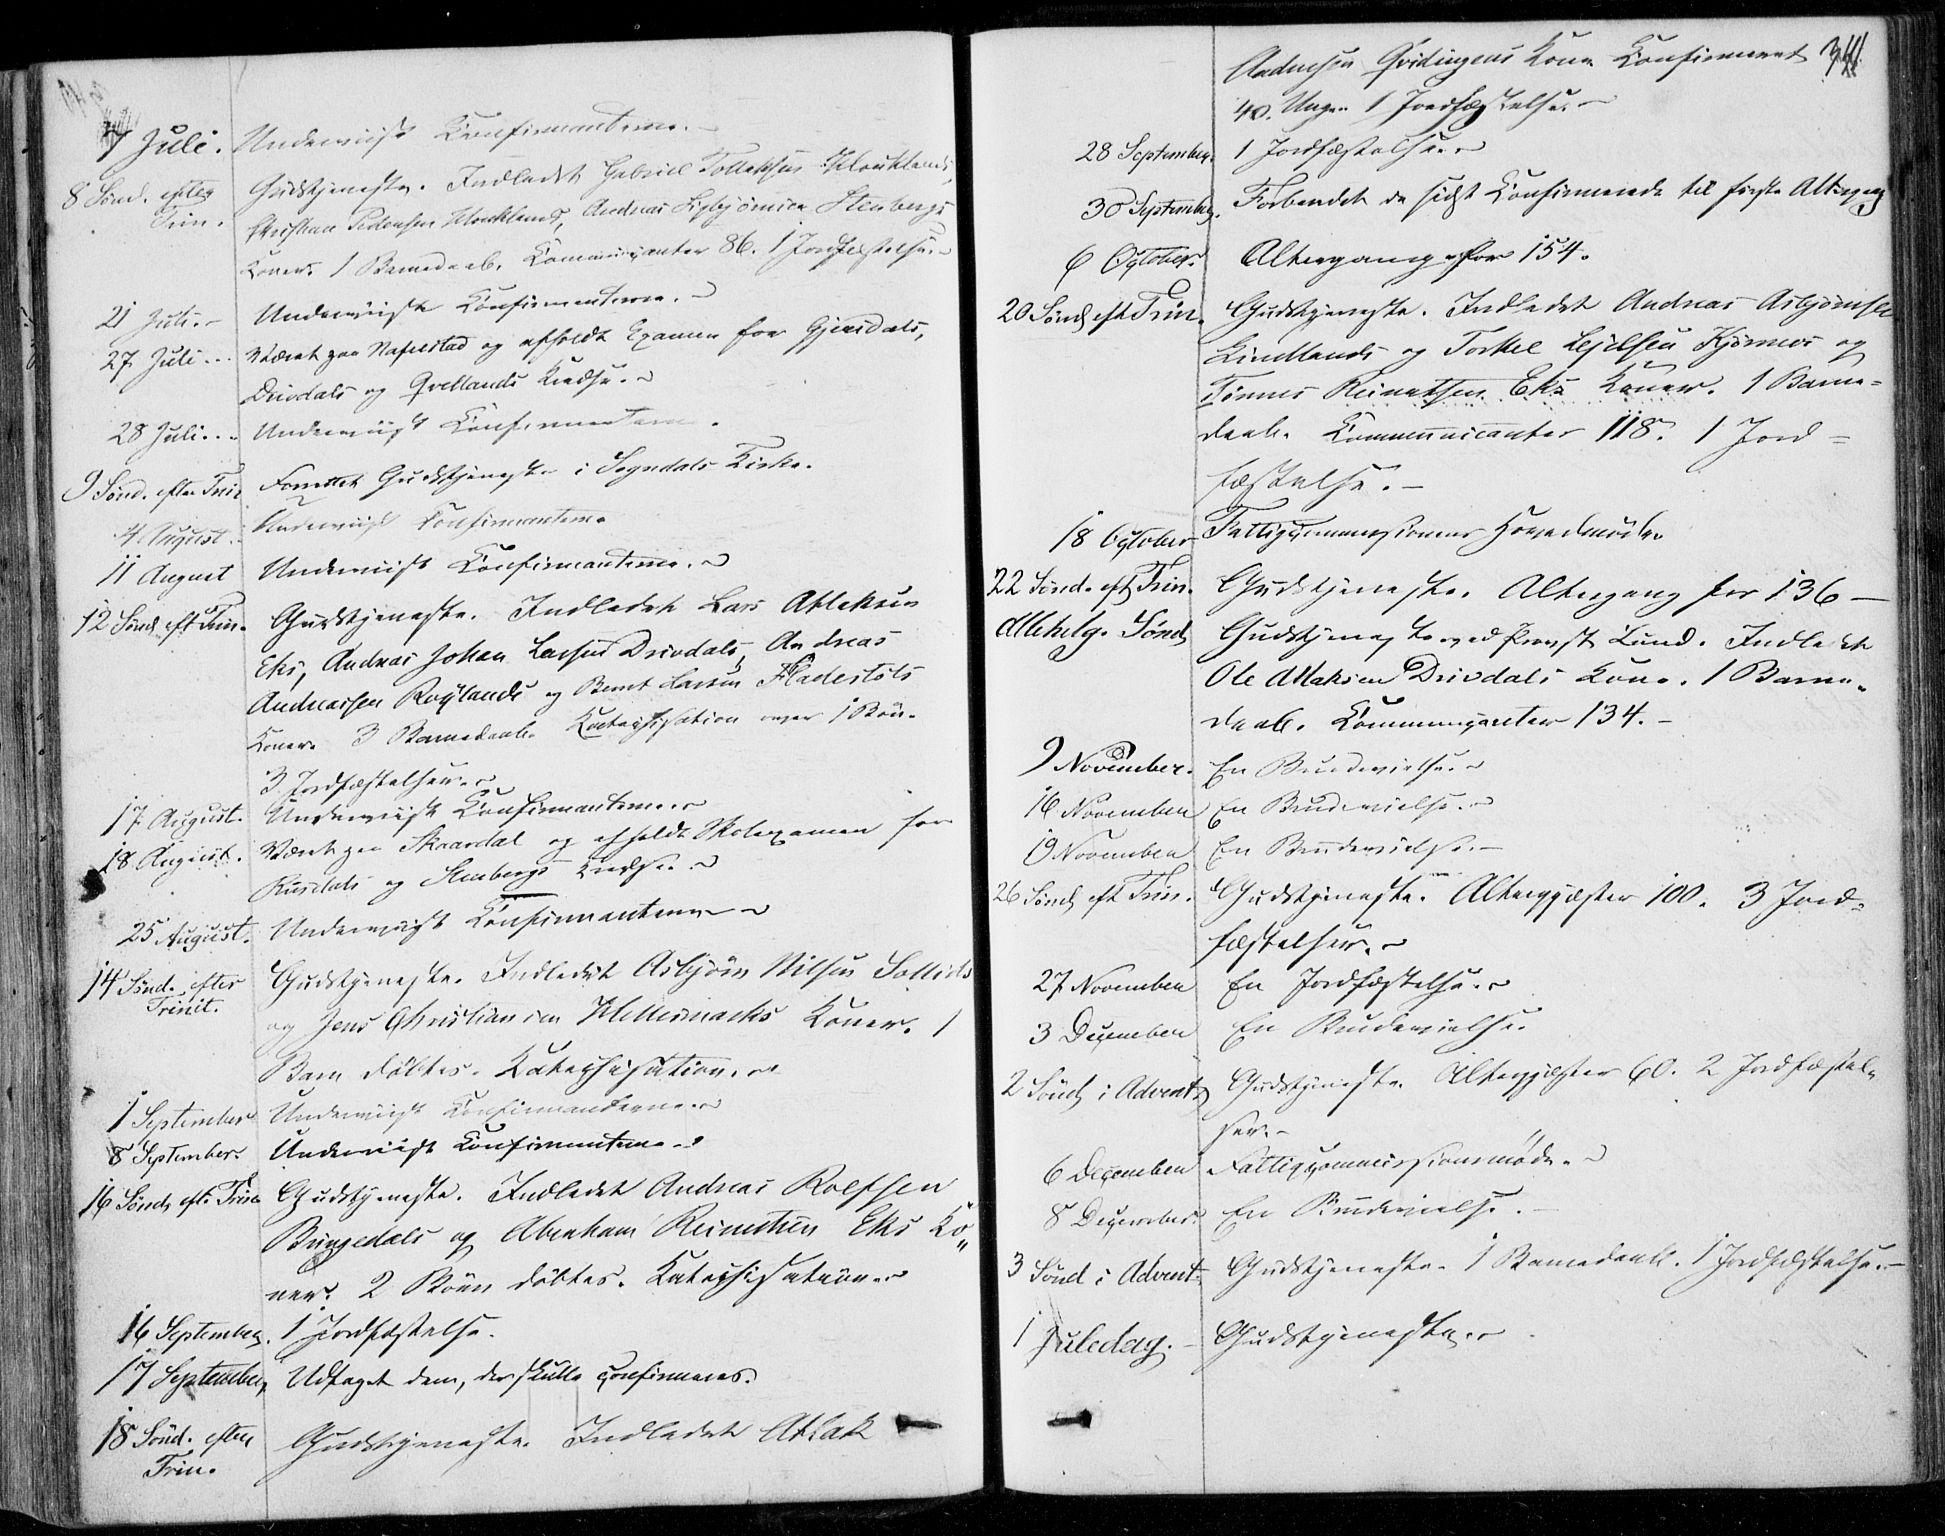 7 Juli. Underviist Confirmanterne.
8 Sønd. efter Gudstjeneste. Indledet Gabriel Tollaksens
Trin. Christian Pedersen Andreas Stenbergs
Koner. 1 Barnedaab. Communicanter 86. 1 Jordfæstelse.
21 Juli. Underviiste Confirmanterne.
27 Juli. Været paa Nafrestad og afholdt Examen for Gjersdals,
Drivdals og Qvellands Kredse.
28 Juli. Underviist Confirmanterne.
9 Sønd. efter Trin. Forrettet Gudstjeneste i Sogndals Kirke.
4 August. Underviist Confirmanterne
11 August Underviist Confirmanterne.
12 Sønd. eft Trin. Gudstjeneste. Indledet Lars Atlaksen
Eks, Andreas Johan Larsens Drivdals, Andreas
Andreassen Røylands og Bernt Larsen Fladestøls
Koner. 3 Barnedaab. Katechisation over 1 Bøn.
3 Jordfæstelser.
17 August. Underviist Confirmanterne.
18 August. Været paa Skaardal og afholdt Skoleexamen for
Rusdals og Stenbergs Kredse.
25 August. Underviist Confirmanterne
14 Sønd. efter Gudstjeneste. Indledet Asbjørn Nilsens Sollids
Trinit. og Jens Christiansen Koner. 1
Barn døbtes. Katechisation.
1 September Underviist Confirmanderne.
8 September. Underviist Confirmanterne.
16 Sønd. eft. Trin. Gudstjeneste. Indledet Andreas Rolfsen
og Abraham Reinertsen Eks Ko„
ner. 2 Børn døbtes. Katechisation.
16 September. 1 Jordfæstelse.
17 September Udtaget dem, der skulle confirmeres.
18 Sønd. efter Gudstjeneste. Indledet Atlak
Trin.
Andersen Qvidingens Kone Confirmeret
40. Unge. 1 Jordfæstelse.
28 September. 1 Jordfæstelse.
30 September. Forberedet de sidst Confirmerede til første Altergang
6 October. Altergang for 154.
20 Sønd. eft Trin. Gudstjeneste. Indledet Andreas Asbjørnsen
Lindlands og Torkel Kjørmos og
Tønnes Reinertsen Eks Koner. 1 Barne=
daab. Communicanter 118. 1 Jord=
fæstelse.
18 October Fattigcommissionens Hovedmøde.
22 Sønd. eft Trin. Gudstjeneste. Altergang for 136
Allehelg. Sønd. Gudstjeneste ved Provst Lund. Indledet
Ole Atlaksen Drivdals Kone. 1 Barne„
daab. Communicanter 134.
9 November. En Brudevielse.
16 November En Brudevielse.
19 November En Brudevielse.
26 Sønd. eft Trin. Gudstjeneste. Altergjæster 100. 3 Jord„
fæstelser.
27 November En Jordfæstelse.
3 December En Brudevielse.
2 Sønd. i Advent. Gudstjeneste. Altergjæster 60. 2 Jordfæstel„
ser.
6 December Fattigcommissionsmøde.
8 December. En Brudevielse.
3 Sønd. i Advent. Gudstjeneste. 1 Barnedaab. 1 Jordfæstelse.
1 Juledag. Gudstjeneste.